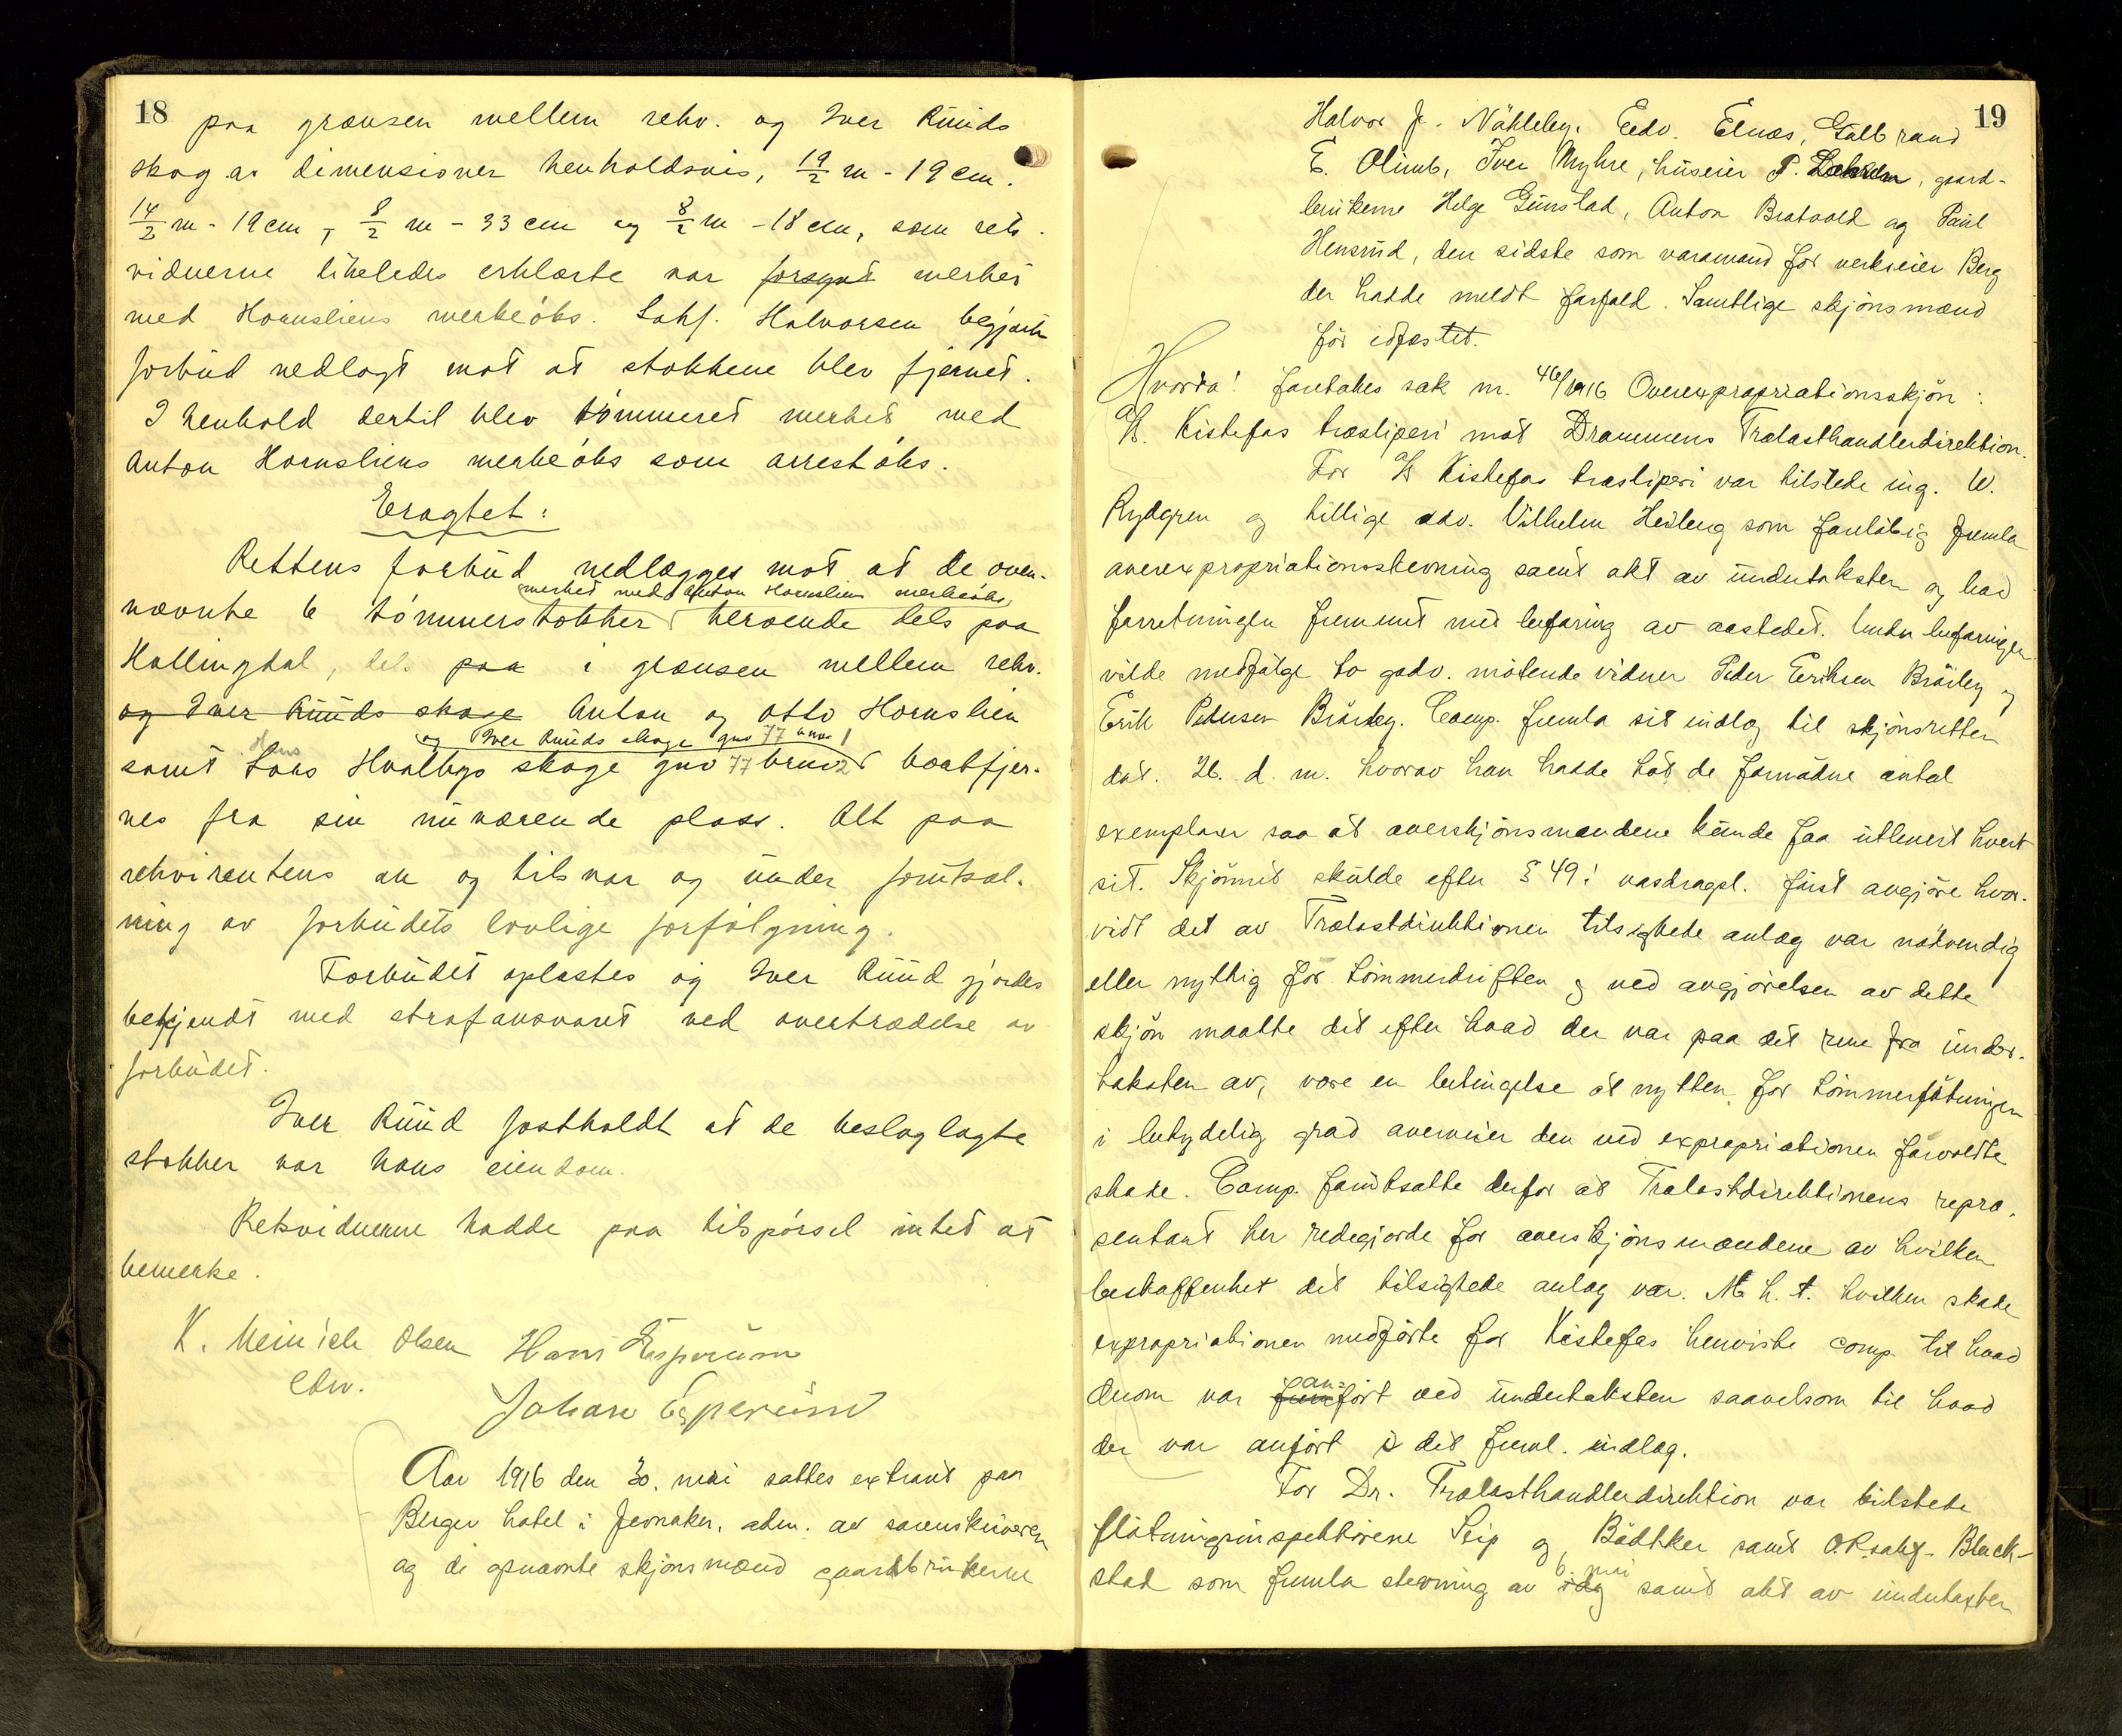 18
paa grænsen mellem rekv. og Iver Ruuds
skog av dimensioner henholdsvis, 19/2 m - 19 cm.
14/2 m - 19 cm, 8/2 m - 33 cm og 8/2 m - 18 cm, som rets-
vidnerne likeledes erklærte var forsynt merket
med Hornsliens merkeöks. Sakf. Halvorsen begjærte
forbud nedlagt mot at stokkene blev fjernet.
I henhold dertil blev tömmeret merket med
Anton Hornsliens merkeöks som arrestöks.
Eragtet:
Rettens forbud nedlægges mot at de oven-
merket med Anton Hornsliens merkeöks,
nævnte 6 tömmerstokker beroende dels paa
Hallingdal, dels paa i grænsen mellem rekv.
og Iver Ruuds skoge Anton og Otto Hornslien
og Iver Ruuds skoge gno 77 bno 1
Hans
samt Lars Hvalbys skoge gno 77 bruno 2 bortfjer-
nes fra sin nuværende plass. Alt paa
rekvirentens an og tilsvar og under forutsæt-
ning av forbudets lovlige forfölgning.
Forbudet oplæstes og Iver Ruud gjordes
bekjendt med strafansvaret ved overtrædelse av
forbudet.
Iver Ruud fastholdt at de beslaglagte
stokker var hans eiendom.
Retsvidnerne hadde paa tilspörsel intet at
bemerke.
K. Meinich Olsen Hans Esperum
cbw.
Johan Esperund
Aar 1916 den 30. mai sattes extraret paa
Berger hotel i Jevnaker, adm. av sorenskriveren
og de opnævnte skjönsmænd gaardbrukerne
19
Halvor J. Nökleby, Edv. Elnæs, Gulbrand
E. Olimb, Iver Myhre, huseier P. gaard-
brukerne Helge Gunstad, Anton Bratvold og Paul
Hensrud, den sidste som varamand for verkseier Berg
der hadde meldt forfald. Samtlige skjönsmænd
för edfæstet.
Hvorda! foretokes sak nr. 46/1916 Overexpropriationsskjön:
A/S. Kistefos træsliperi mot Drammens Trælasthandlerdirektion.
For A/S Kistefos træsliperi var tilstede ing. W.
Rydgren og tillige adv. Vilhelm Heiberg som foreläbig fremla
overexpropriationsstevning samt akt av undertaksten og bad
forretningen fremmet med befaring av aastedet. Under befaringen
vilde medfölge to godv. mötende vidner Peder Eriksen Bråtley og
Erik Pedersen Bråtley. Comp. fremla sit indlæg til skjönsretten
dat. 26. d. m. hvorav han hadde tat de fornödne antal
exemplarer saa at overskjönsmændene kunde faa utlevert hvert
sit. Skjönnet skulde efter § 49: vasdragsl. först avgjöre hvor-
vidt det av Trælastdirektionen tilsigtede anlæg var nödvendig
eller nyttig for tömmerdriften og ved avgjörelsen av dette
skjön maatte det efter hvad der var paa det rene fra under-
taksten av, være en betingelse at nytten for tömmerflötningen
i betydelig grad overveier den ved expropriationen forvoldte
skade. Comp. forutsatte derfor at Trælastdirektionens repræ-
sentant her redegjorde for overskjönsmændene av hvilken
beskaffenhet det tilsigtede anlæg var. M. h. t. hvilken skade
expropriationen medförte for Kistefos henviste comp. til hvad
an-
derom var fremfört ved undertaksten saavelsom til hvad
der var anfört i det freml. indlæg.
For Dr. Trælasthandlerdirektion var tilstede
flötningsinspektörene Seip og Bödtker samt O.R.sakf. Black-
6. mai
stad som fremla stevning av idag samt akt av undertaksten